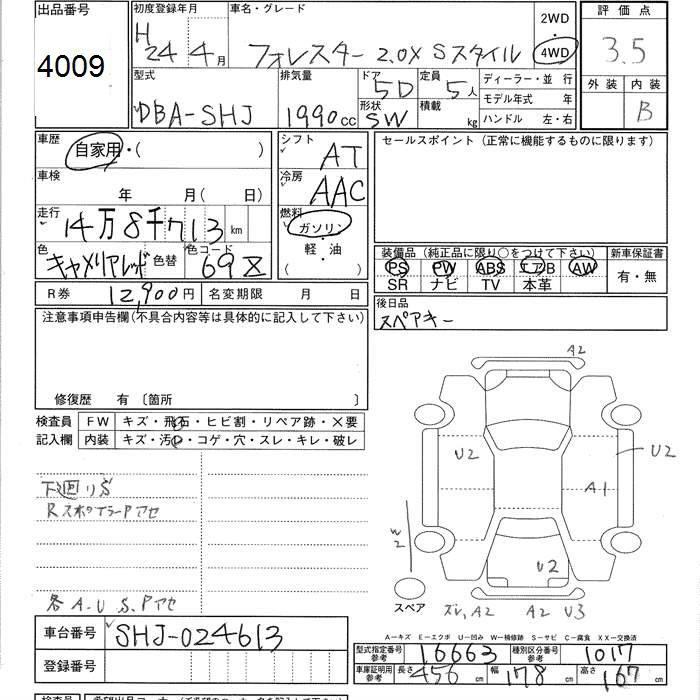 出品番号 初度登録年月 車名・グレード 2WD 評価点
4009 H24年4月 フォレスター 2.0X Sスタイル 4WD 3.5
型式 排気量 ドア 定員 ディーラー・並行 外装 内装
DBA-SHJ 1990cc 5D 5人 モデル年式 年 B
形状 SW 積載 kg ハンドル 左・右
車歴 自家用・( ) シフト AT セールスポイント (正常に機能するものに限ります)
車検 年 月( 日) 冷房 AAC
走行 14万8千713km 燃料 ガソリン・
軽・油
( )
色 キャメリアレッド 色替 色コード 69Z
装備品 (純正品に限り○をつけて下さい) 新車保証書
PS PW ABS エアB AW 有・無
SR ナビ TV 本革
R券 12,900円 名変期限 月 日 後日品
スペアキー
注意事項申告欄(不具合内容等は具体的に記入して下さい)
修復歴 有 〔箇所 〕
検査員 FW キズ・飛石・ヒビ割・リペア跡・×要
記入欄 内装 キズ・汚・コゲ・穴・スレ・キレ・破レ
下回りサビ
RスポイラーPアセ
各A・U S、Pアセ
A2
U2 U2
A1
W2
U2
スペア スレ、A2 A2 U3
A-キズ E-エクボ U-凹み W-補修跡 S-サビ C-腐食 XX-交換済
車台番号 SHJ-024613
型式指定番号 参考 16663 種別区分番号 参考 1017
登録番号
車庫証明用 参考 長さ 456cm 幅 178cm 高さ 167cm